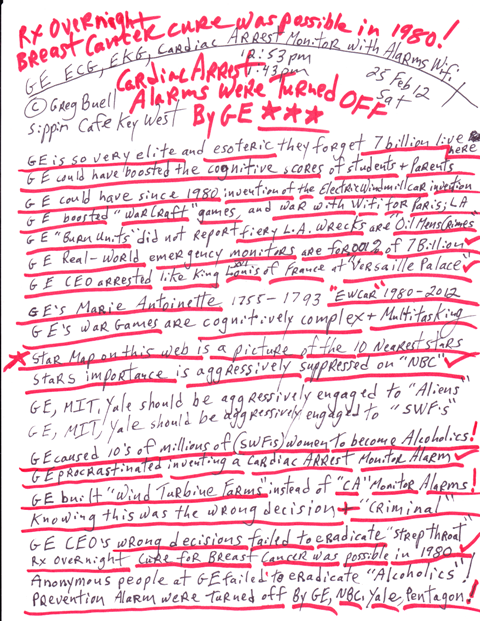 Rx Overnight
Breast Cancer cure was possible in 1980!
GE ECG, EKG, Cardiac Arrest Monitor with Alarms WiFi!
:53pm
Cardiac Arrest :43pm
25 Feb 12
Sat
Alarms were Turned OFF
© Greg Buell
By GE ★★★
Sippin Cafe Key West
GE is so very elite and esoteric they forget 7 billion live here
GE could have boosted the cognitive scores of students + parents
GE could have since 1980 invention of the Electricwindmillcar invention
GE boosted "WarCraft" games, and war with WiFi for Paris; LA
GE "Burn Units" did not report fiery L.A. wrecks are "Oil Mens Crimes"
GE Real-World emergency monitors are for 001% of 7 Billion
GE CEO arrested like King Louis of France at "Versaille Palace"
GE's Marie Antoinette 1755-1793 "EWCar" 1980-2012
GE's war games are cognitively complex + Multitasking
★ Star Map on this web is a picture of the 10 nearest stars
Stars importance is aggressively suppressed on "NBC"
GE, MIT, Yale should be aggressively engaged to "Aliens"
GE, MIT, Yale should be aggressively engaged to "SWF's"
GE caused 10's of millions of (SWF's) women to become Alcoholics!
GE procrastinated inventing a cardiac arrest monitor alarm
GE built "Wind Turbine Farms" instead of "CA" Monitor Alarms!
Knowing this was the wrong decision + "criminal"
GE CEO's wrong decisions failed to eradicate "strep throat"
Rx overnight cure for Breast Cancer was possible in 1980
Anonymous people at GE failed to eradicate "Alcoholics"!
Prevention Alarm were turned off By GE, NBC, Yale, Pentagon!